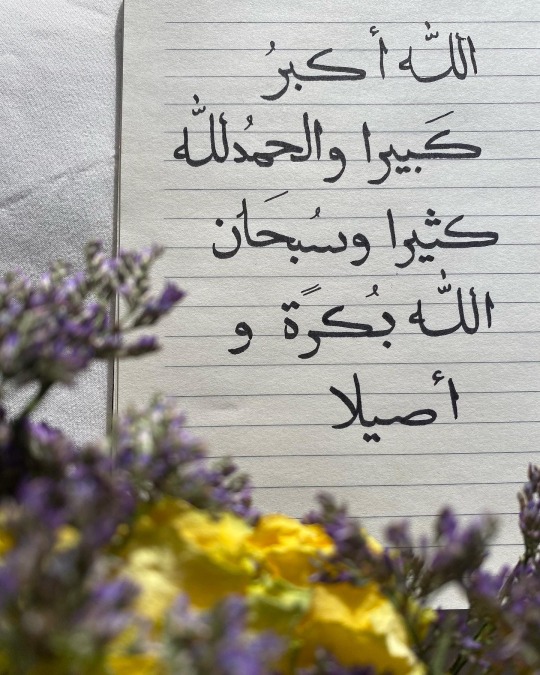 الله أكبرُ
كَبيرا والحمُدلله
كثيرا وسُبحَان
الله بُكرَةً و
أصيلا